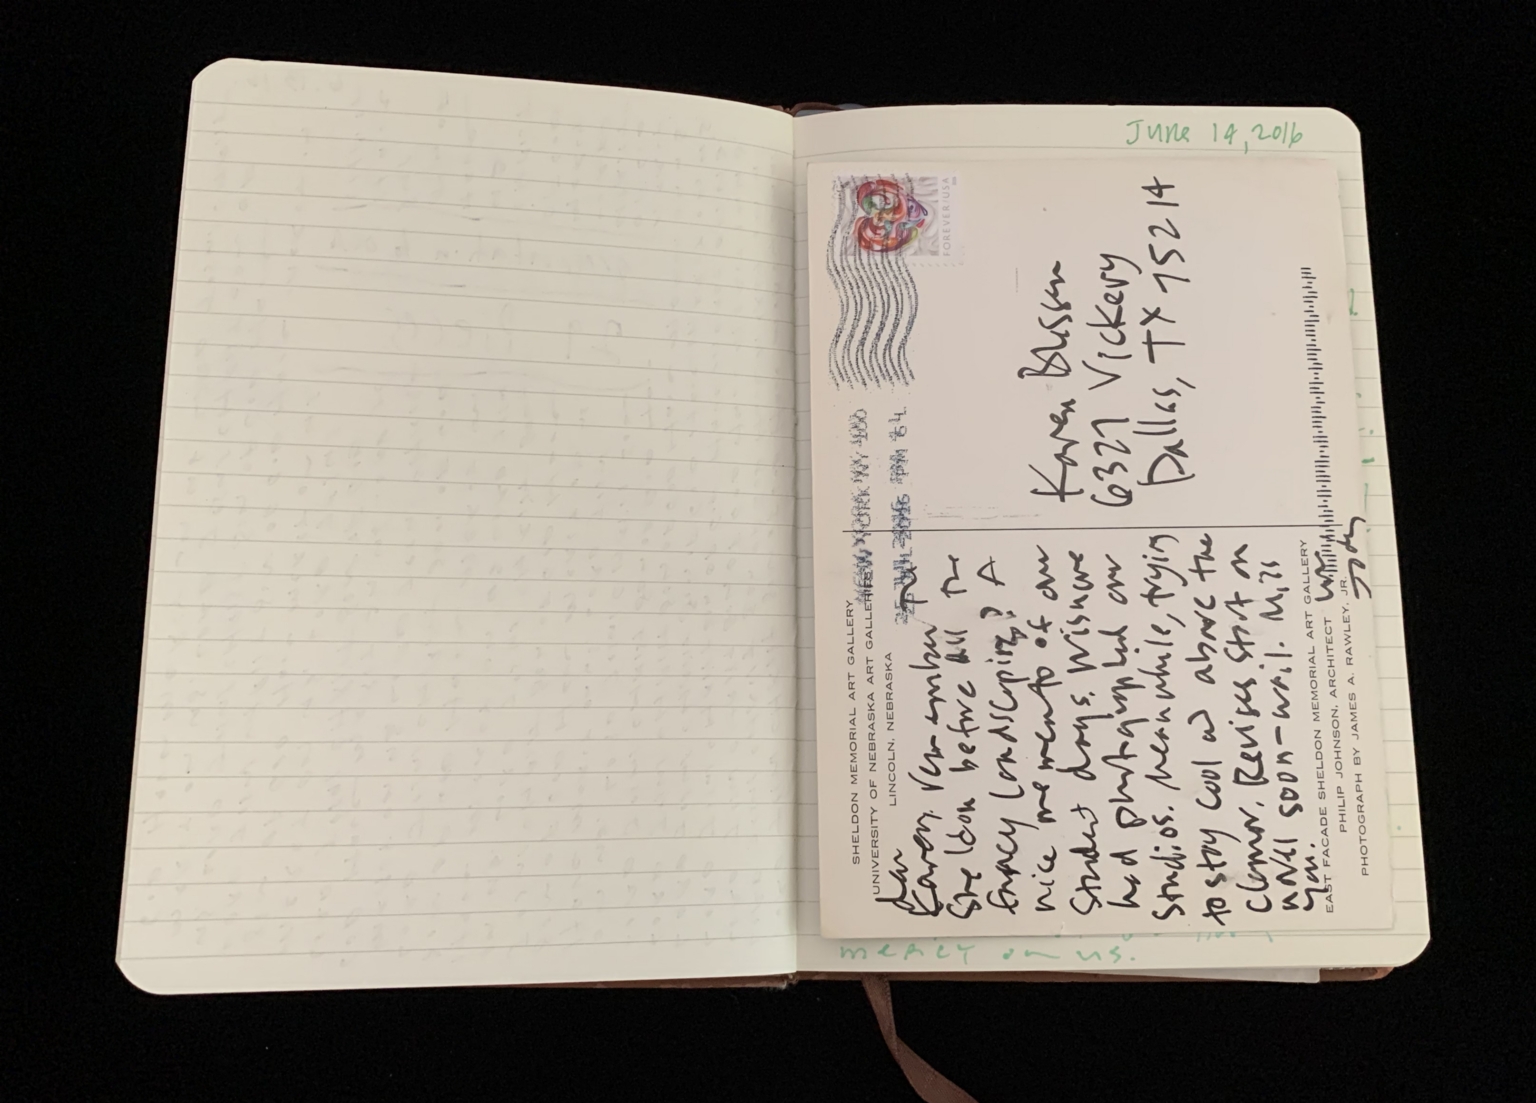 June 14, 2016
FOREVER/USA
NEW YORK NY 100
25 JUL 2016 PM 8 L
SHELDON MEMORIAL ART GALLERY
UNIVERSITY OF NEBRASKA ART GALLERIES
LINCOLN, NEBRASKA
Dear
Karen, Remember
Sheldon before all the
fancy landscaping? A
nice memento of our
student days. Wish we
had photographed our
studios. Meanwhile, trying
to stay cool above the
clamor. Revises start on
novel soon—wail. Miss
you.
Jody
Karen Blessen
6327 Vickery
Dallas, TX 75214
EAST FACADE SHELDON MEMORIAL ART GALLERY
PHILIP JOHNSON, ARCHITECT
PHOTOGRAPH BY JAMES A. RAWLEY, JR.
mercy on us.